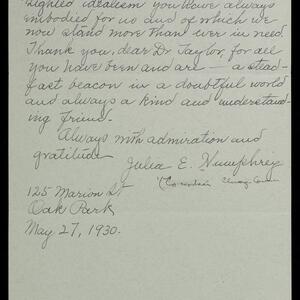 sighted idealism you have always
embodied for us and of which we
now stand more than ever in need.
Thank you, dear Dr Taylor, for all
you have been and are — a stead-
fast beacon in a doubtful world
and always a kind and understand-
ing friend.
Always with admiration and
gratitude
Julia E. Humphrey
125 Marion St
Oak Park
May 27, 1930.